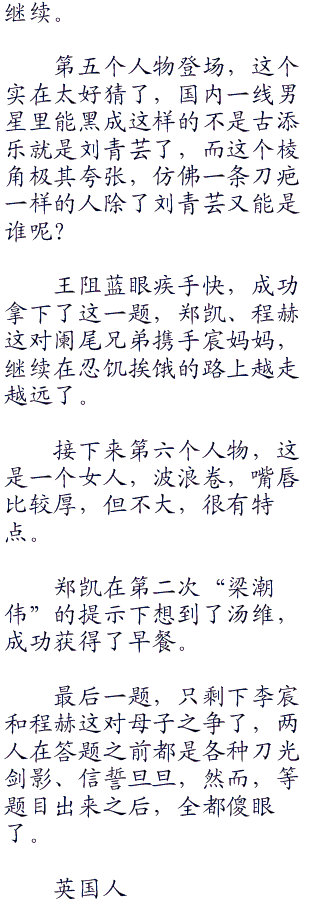 继续。
第五个人物登场，这个
实在太好猜了，国内一线男
星里能黑成这样的不是古添
乐就是刘青芸了，而这个棱
角极其夸张，仿佛一条刀疤
一样的人除了刘青芸又能是
谁呢？
王阻蓝眼疾手快，成功
拿下了这一题，郑凯、程赫
这对阑尾兄弟携手宸妈妈，
继续在忍饥挨饿的路上越走
越远了。
接下来第六个人物，这
是一个女人，波浪卷，嘴唇
比较厚，但不大，很有特
点。
郑凯在第二次“梁潮
伟”的提示下想到了汤维，
成功获得了早餐。
最后一题，只剩下李宸
和程赫这对母子之争了，两
人在答题之前都是各种刀光
剑影、信誓旦旦，然而，等
题目出来之后，全都傻眼
了。
英国人